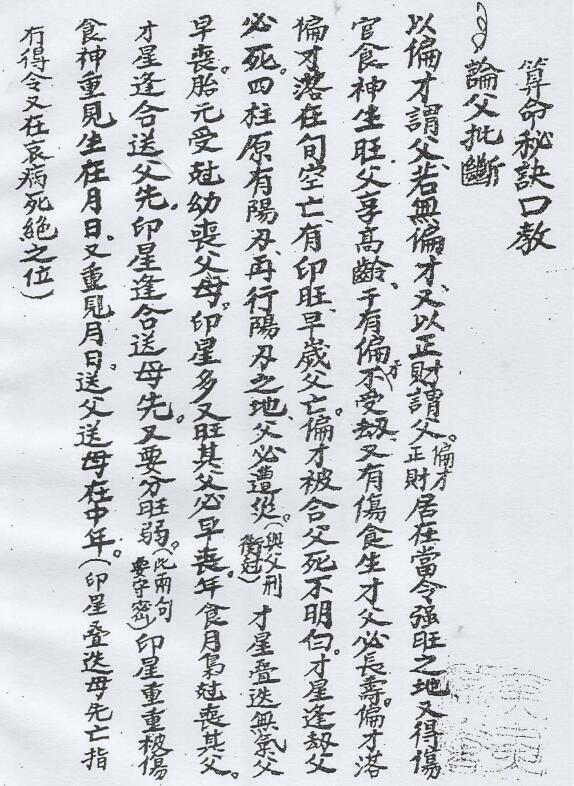 算命秘訣口教
論父批斷
以偏才謂父、若無偏才、又以正財謂父。偏才正財居在當令强旺之地、又得傷
官食神生旺、父享高齡、干有偏才、不受刼、又有傷食生才、父必長壽。偏才落
偏才落在旬空亡、有印旺、早歲父亡。偏才被合、父死不明白。才星逢刼、父
必死。四柱原有陽刃、再行陽刃之地、父必遭災。(與父刑衝尅)才星叠迭無氣、父
早喪。胎元受尅、幼喪父母。印星多又旺、其父必早喪。年食月梟尅、喪其父。
才星逢合送父先。印星逢合送母先。又要分旺弱。(此兩句要守密)印星重重被傷
食神重見生在月日、又重見月日。送父送母在中年。(印星叠迭母先亡指
冇得令又在衰病死絕之位)